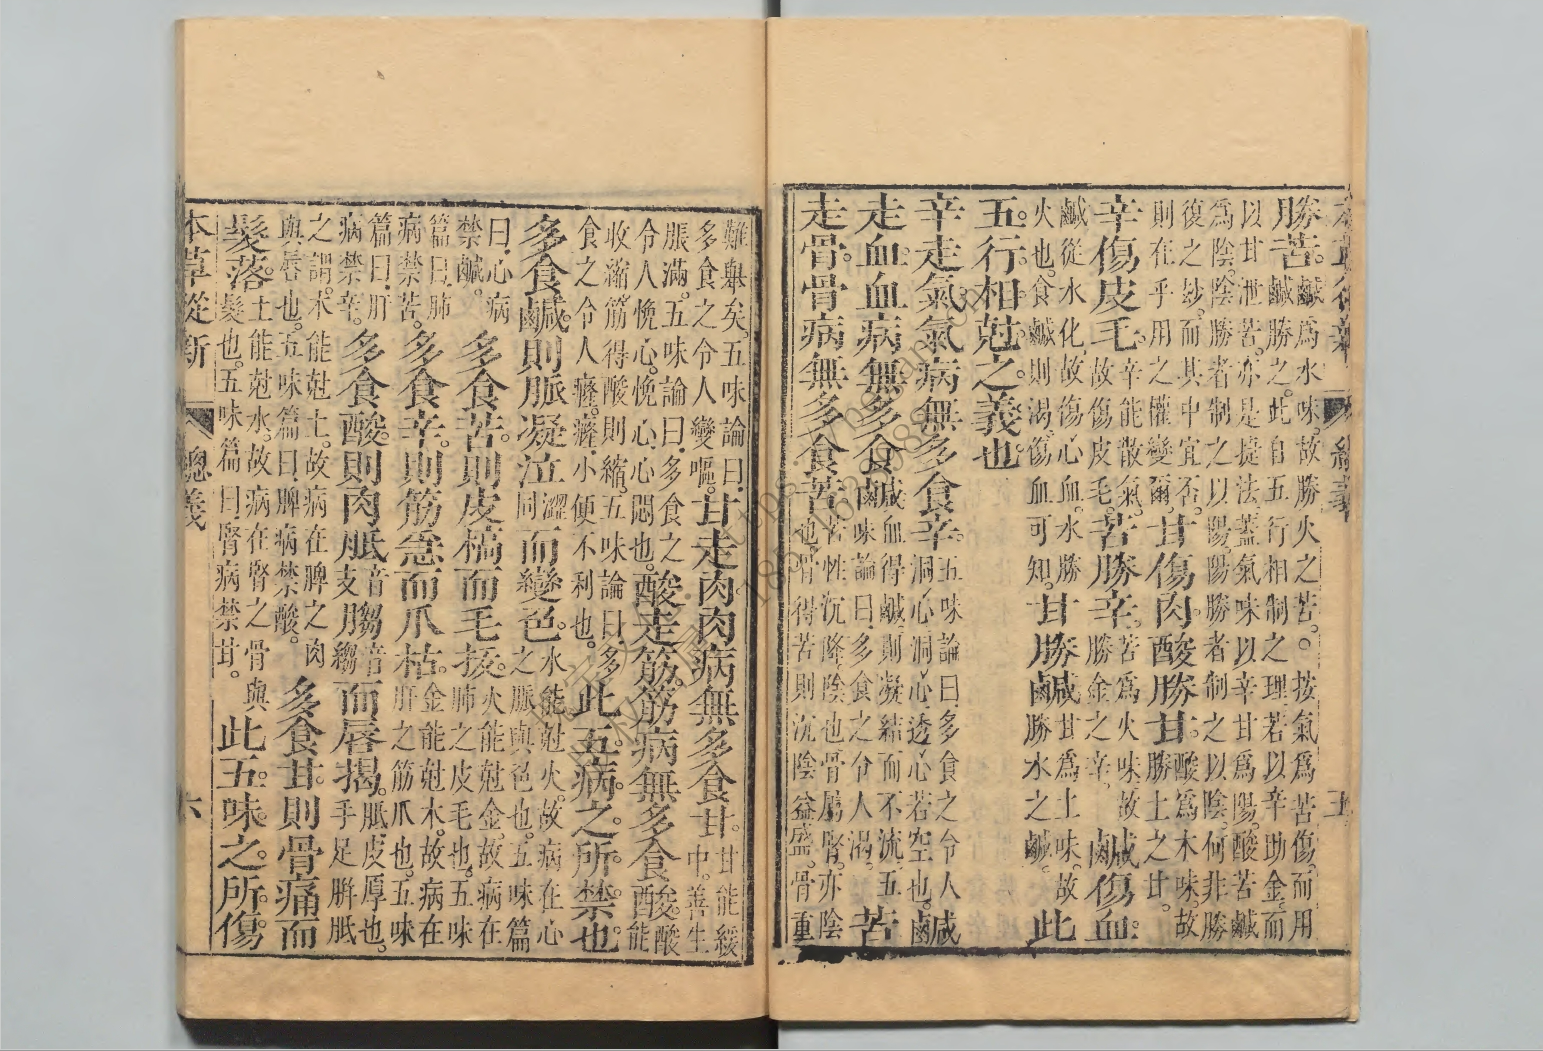 本草從新 總義 五
勝苦。
鹹爲水味。故勝火之苦。○按氣爲苦傷。而用
鹹勝之。此自五行相制之理。若以辛助金。而
以甘泄苦。亦是捷法。蓋氣味以辛甘爲陽。酸苦鹹
爲陰。陰勝者制之以陽。陽勝者制之以陰。何非勝
復之妙。而其中宜否。
則在乎用之權變爾。
甘傷肉酸勝甘。
酸爲木味。故
勝土之甘。
辛傷皮毛。
辛能散氣。
故傷皮毛。
苦勝辛。
苦爲火味故
勝金之辛。
鹹傷血。
鹹從水化。故傷心血。水勝
火也。食鹹則渴。傷血可知。
甘勝鹹。
甘爲土味。故
勝水之鹹。
此
五行相尅之義也。
辛走氣氣病無多食辛。
五味論曰多食之令人
洞心洞心透心若空也。
鹹
走血血病無多食鹹
血得鹹則凝結而不流五
味論曰多食之令人渴。
苦
走骨骨病無多食苦
苦性沉降陰也骨屬腎。亦陰
也。骨得苦則沉陰益盛。骨重
難舉矣。五味論曰.
多食之令人變嘔。
甘走肉肉病無多食甘。
甘能緩
中。善生
脹滿。五味論曰.多食之
令人悗心。悗心.心悶也。
酸走筋筋病無多食酸。
酸
能
收濇筋得酸則縮。五味論曰.多
食之令人癃。癃.小便不利也。
此五病之所禁也
多食鹹。則脈凝泣
澀
同
而變色。
水能尅火。故病在心
之脈與色也。五味篇
曰.心病
禁鹹。
多食苦。則皮槁而毛拔。
火能尅金故病在
肺之皮毛也。五味
篇曰.肺
病禁苦。
多食辛。則筋急而爪枯。
金能尅木。故病在
肝之筋爪也。五味
篇曰.肝
病禁辛。
多食酸。則肉胝
音
支
䐢
音
縐
而唇揭。
胝皮厚也。
手足胼胝
之謂。木能尅土。故病在脾之肉
與唇也。五味篇曰.脾病禁酸。
多食甘。則骨痛而
髮落。
土能尅水。故病在腎之骨與
髮也。五味篇曰腎病禁甘。
此五味之所傷
本草從新 總義 六